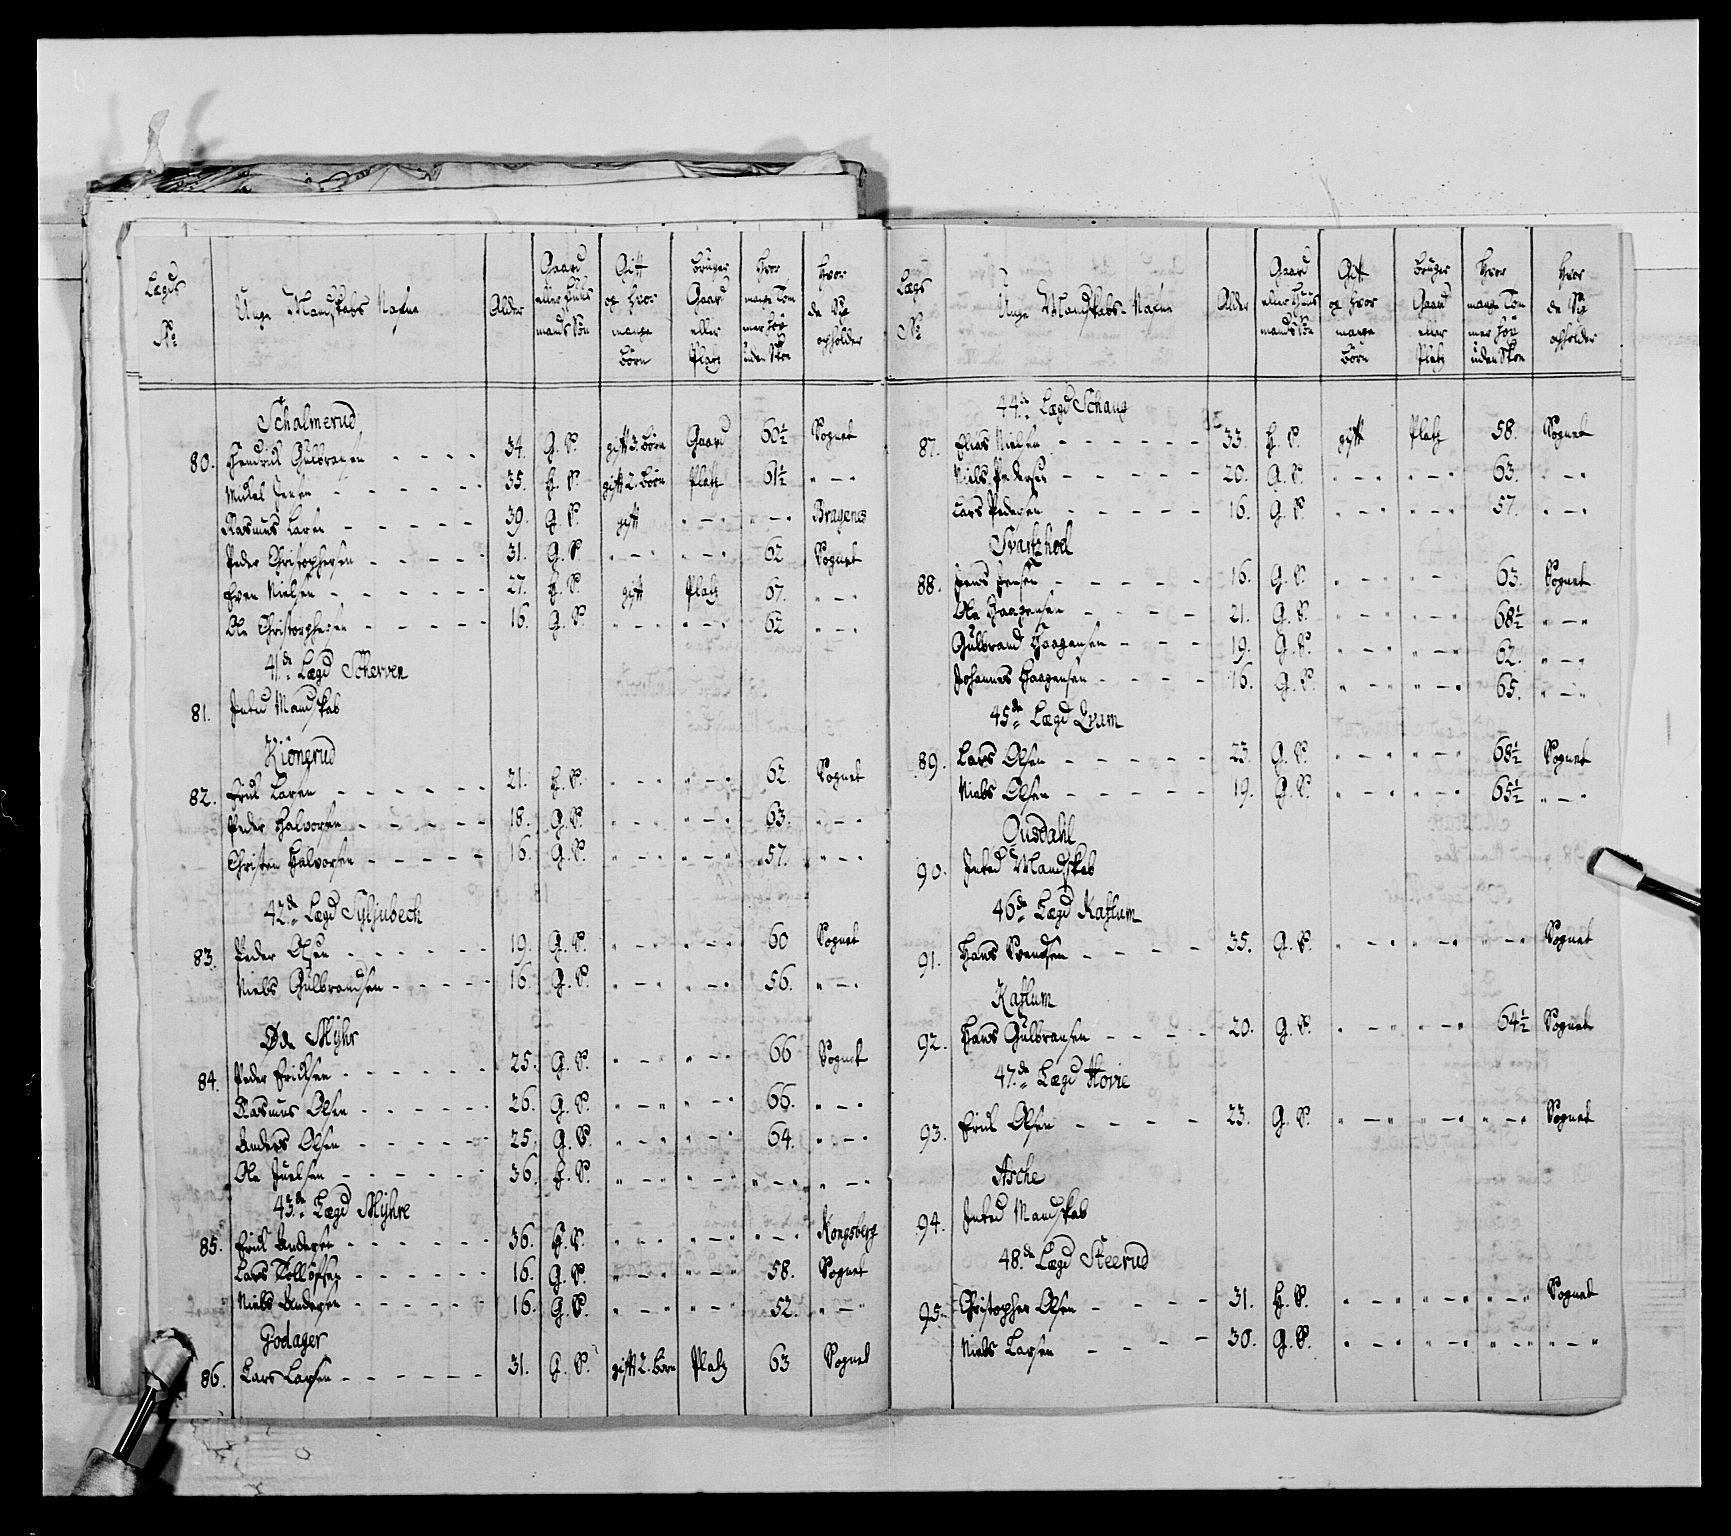 Lægds No | Unge Mandskabs Nafne | Alder | Gaard eller Huusmands Søn | Gift og hvor mange Børn | bruger Gaard eller Platz | Hvor mange Tommer høy uden Skoe | Hvor de sig opholder
Schalmerud
80. Hendrik Gulbransen - - - - 34. G. S. gift 3. Børn Gaard 60½ Sognet
Mickel Jensen - - - - - - 35. H. S. gift 2. Børn Platz 61½ " - "
Rasmus Larsen - - - - - 39. G. S. gift " - " " - " Bragenes
Peder Christophersen - - - - - 31. G. S. " - " " - " 62 Sognet
Even Nielsen - - - - - - 27. H. S. gift Platz 67. " - "
Ole Christophersen - - - - - 16. G. S. " - " " - " 62 " - "
41de Lægd Scherven
81. Inted Mandskab
Kiöngrud
82. Erik Larsen - - - - - - 21. H. S. " - " " - " 62 Sognet
Peder Halvorsen - - - - - 18. G. S. " - " " - " 63. " - "
Christen Halvorsen - - - - - 16. G. S. " - " " - " 57. " - "
42de Lægd Syljubech
83. Peder Olsen - - - - - 19. G. S. " - " " - " 60 Sognet
Niels Gulbrandsen - - - - 16. G. S. " - " " - " 56. " - "
Øde Myhr
84. Peder Ericksen - - - - - - 25. G. S. " - " " - " 66 Sognet
Rasmus Olsen - - - - - 26. G. S. " - " " - " 66. " - "
Anders Olsen - - - - - - 25. G. S. " - " " - " 64. " - "
Ole Juelsen - - - - - - 36. H. S. " - " " - " " - " " - "
43de Lægd Myhre
85. Erik Andersen - - - - - - 36. H. S. " - " " - " " - " Kongsberg
Lars Tollöfsen - - - - - - 16. G. S. " - " " - " 58. Sognet
Niels Andersen - - - - - - 16. G. S. " - " " - " 52. " - "
Godager
86. Lars Larsen - - - - - - 31. G. S. gift 2. Børn Platz 63 Sognet
Lægs No | Unge Mandskabs-Nafne | Alder | Gaard eller Huusmands Søn | Gift og hvor mange Børn | bruger Gaard eller Platz | Hvor mange Tommer høy uden Skoe | Hvor de sig opholder
44de Lægd Schaug
87. Elias Nielsen - - - - - - 33. H. S. gift Platz 58. Sognet
Niels Pedersen - - - - - - 20. G. S. " - " " - " 63. " - "
Lars Pedersen - - - - - - 16. G. S. " - " " - " 57. " - "
Svartzhoel
88. Jens Jensen - - - - - 16. G. S. " - " " - " 63. Sognet
Ole Haagensen - - - - 21. G. S. " - " " - " 68½ " - "
Gulbrand Haagensen - - - 19. G. S. " - " " - " 62. " - "
Johannes Haagensen - - - - 16. G. S. " - " " - " 65. " - "
45de Lægd Qvam
89. Lars Olsen - - - - - - 23. G. S. " - " " - " 68½ Sognet
Niels Olsen - - - - - 19. G. S. " - " " - " 65½ " - "
Ousdahl
90. Inted Mandskab
46de Lægd Kaflum
91. Hans Svendsen - - - - 35. G. S. " - " " - " " - " Sognet
Kaflum
92. Hans Gulbransen - - - - 20. G. S. " - " " - " 64½ Sognet
47de Lægd Hovie
93. Erik Olsen - - - - - 23. G. S. " - " " - " " - " Sognet
Asche
94. Inted Mandskab
48de Lægd Steerud
95. Christopher Olsen - - - - 31. H. S. " - " " - " " - " Sognet
Niels Larsen - - - - - 30. G. S. " - " " - " " - " " - "